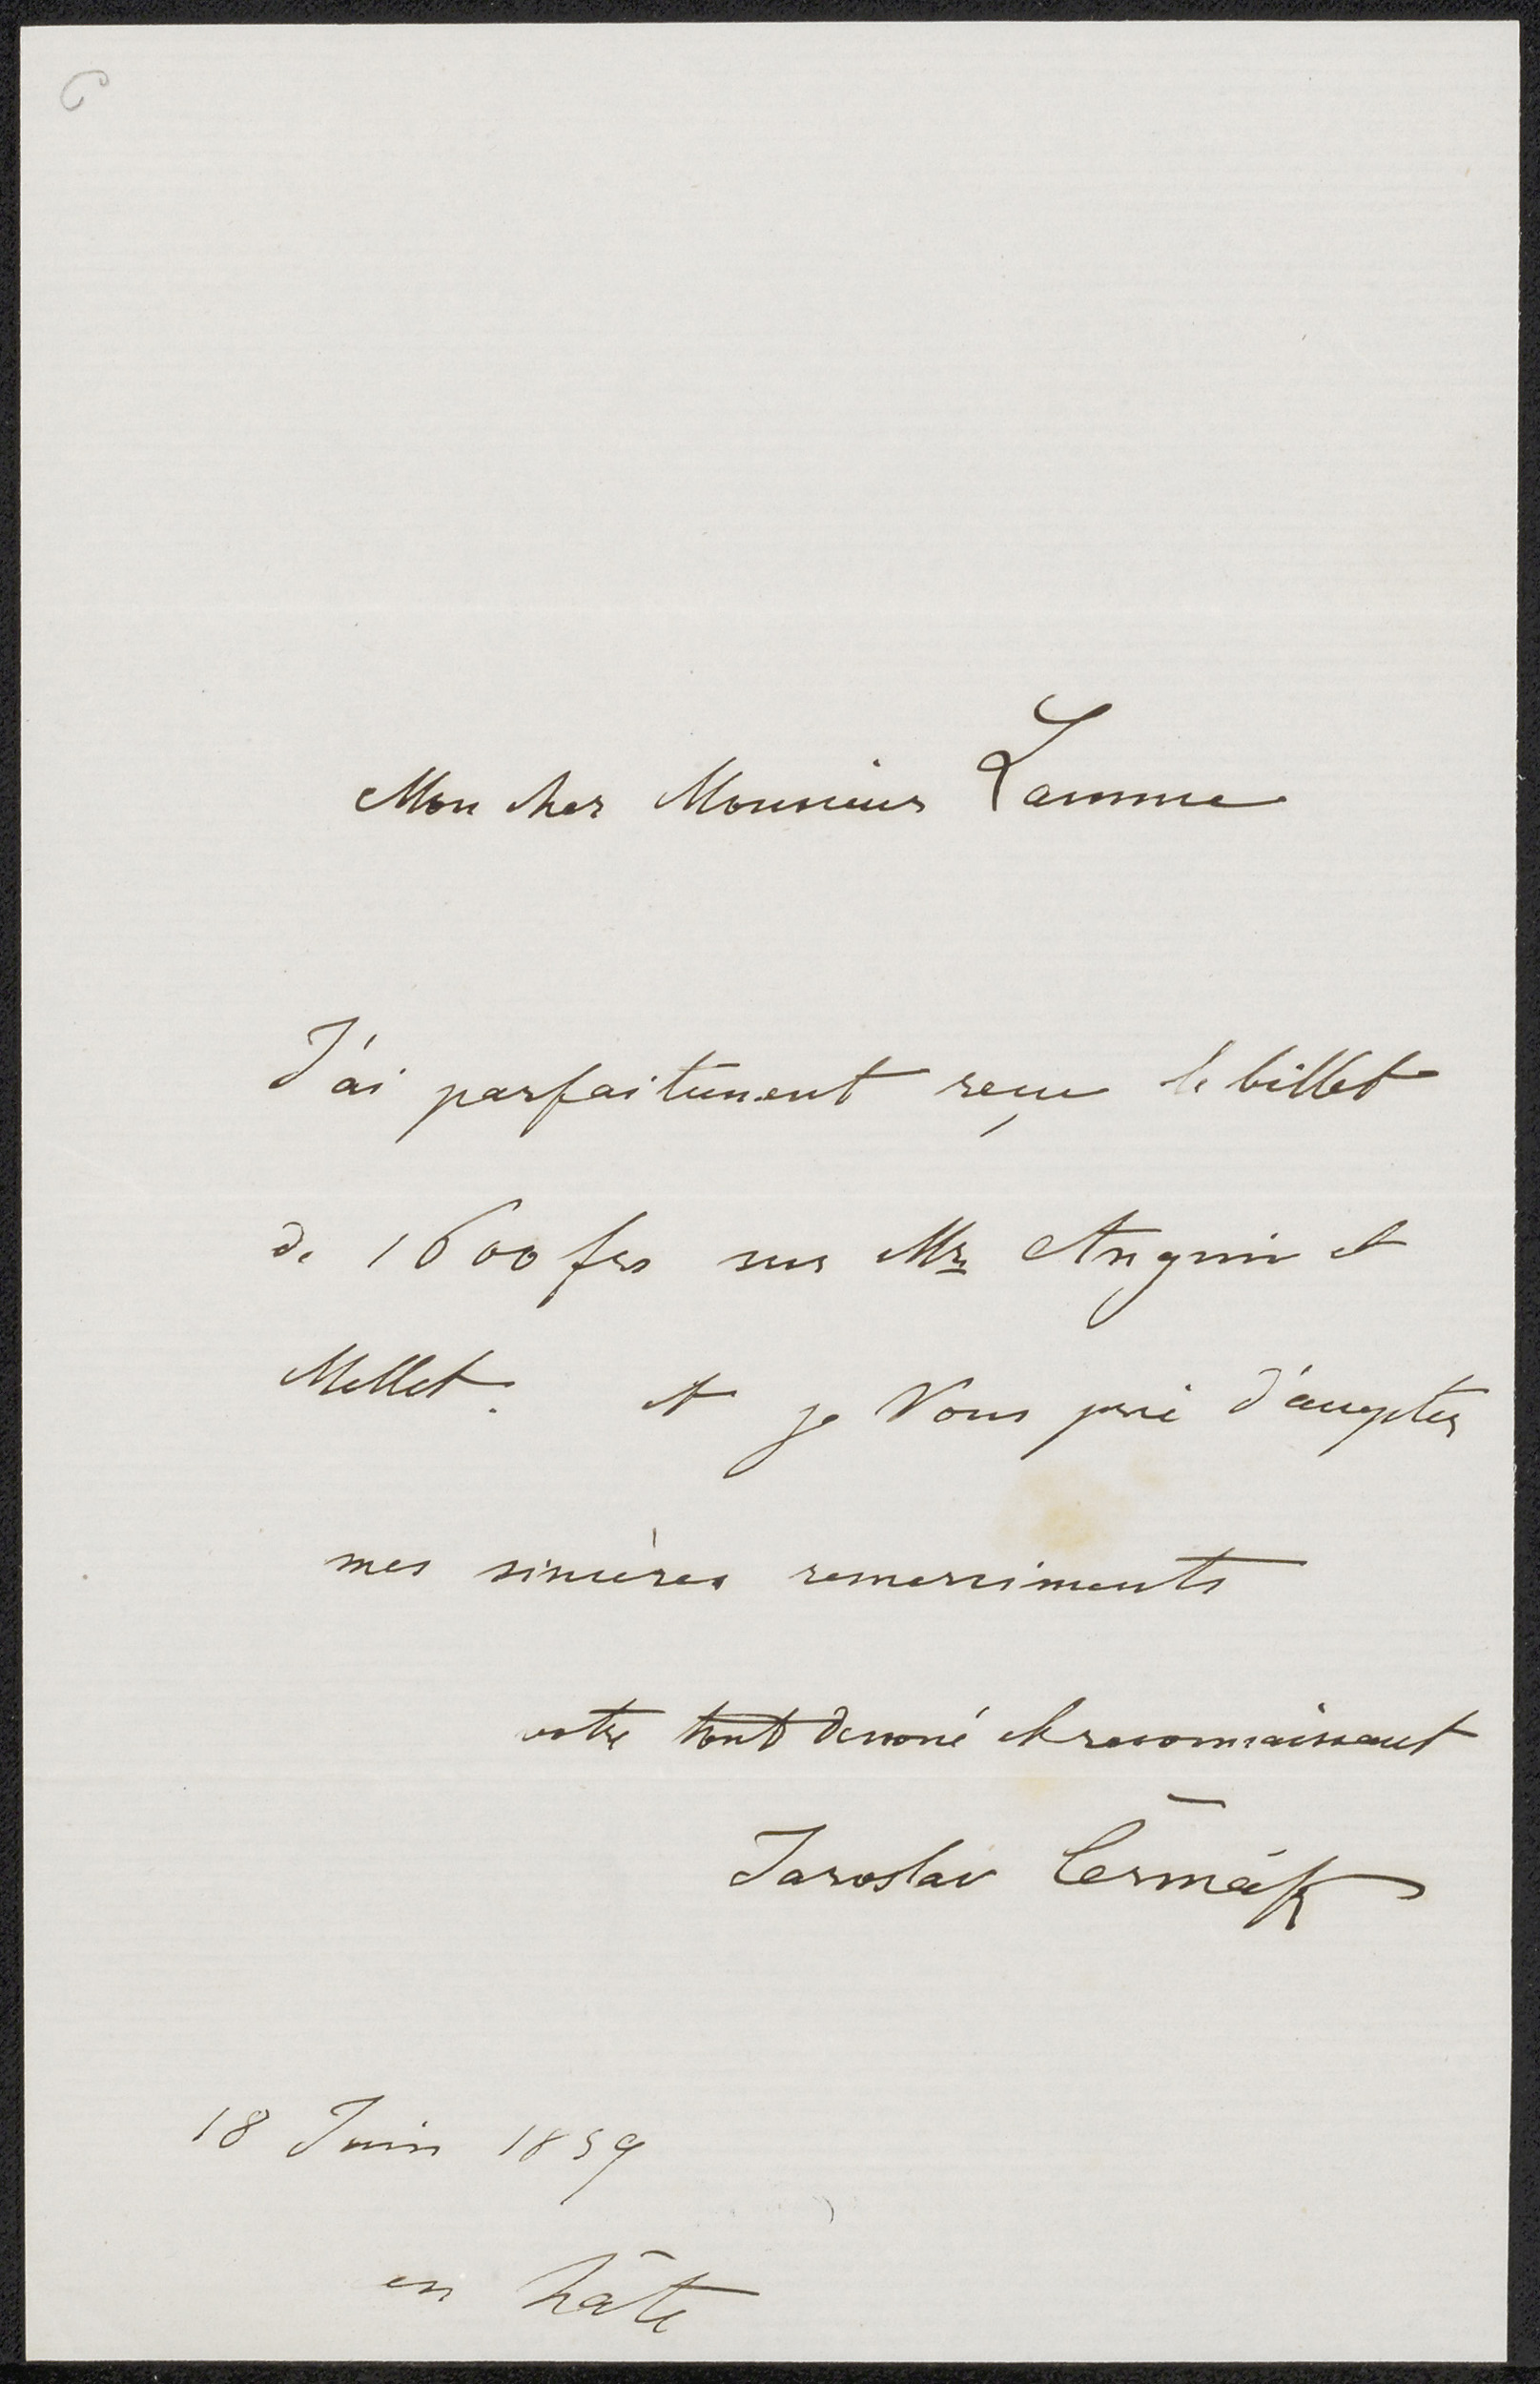 Mon cher Monsieur Lamme
J'ai parfaitement reçu le billet
de 1600 frs sur Mr Anguin et
Mellet. et je Vous prie d'accepter
mes sincères remerciments
votre tout devoué et reconnaissant
Jaroslav Čermák
18 Juin 1859
en hâte